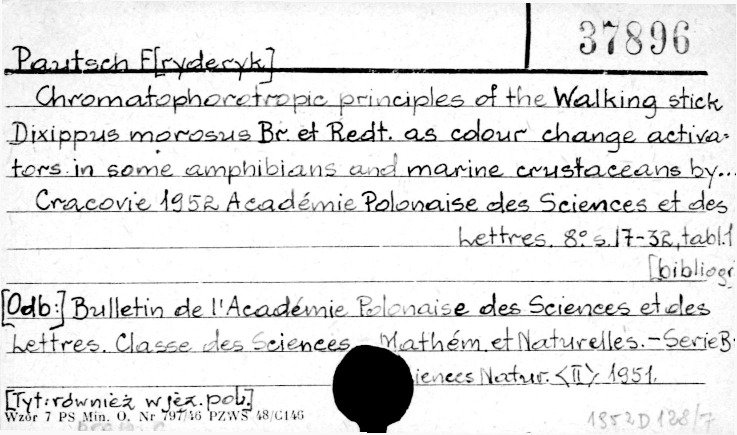 37896
Pautsch F[ryderyk]
Chromatophorotropic principles of the Walking stick
Dixippus morosus Br. et Redt. as colour change activa-
tors in some amphibians and marine crustaceans by...
Cracovie 1952 Académie Polonaise des Sciences et des
Lettres. 8° s. 17-32, tabl. 1
[bibliogr
[Odb:] Bulletin de l'Académie Polonaise des Sciences et des
Lettres. Classe des Sciences Mathém. et Naturelles. - Serie B.
iences Natur. <II> 1951.
[Tyt: również w jęz. pol.]
Wzór 7 PS Min. O. Nr 797/46 PZWS 48/C146
1952 D 128/7